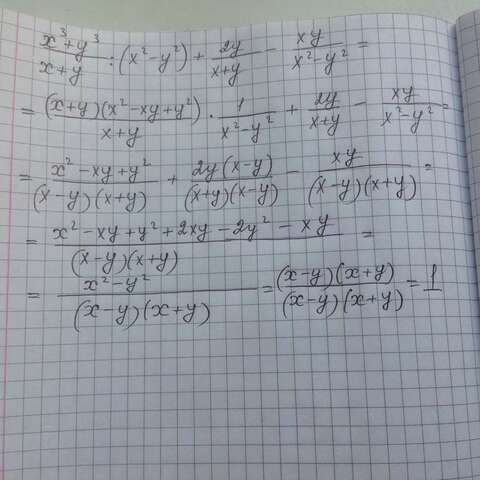 (x³+y³)/(x+y) : (x²-y²) + 2y/(x+y) - xy/(x²-y²) =
= (x+y)(x²-xy+y²)/(x+y) · 1/(x²-y²) + 2y/(x+y) - xy/(x²-y²) =
= (x²-xy+y²)/((x-y)(x+y)) + 2y(x-y)/((x+y)(x-y)) - xy/((x-y)(x+y)) =
= (x²-xy+y²+2xy-2y²-xy)/((x-y)(x+y)) =
= (x²-y²)/((x-y)(x+y)) = (x-y)(x+y)/((x-y)(x+y)) = 1